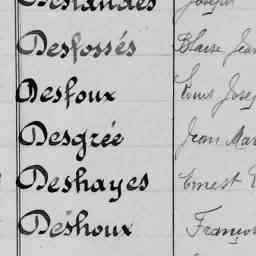 Deslandes Joseph
Desfossés Blaise Jean
Desfoux Louis Jose
Desgrée Jean Mar
Deshayes Ernest
Deshoux Franço